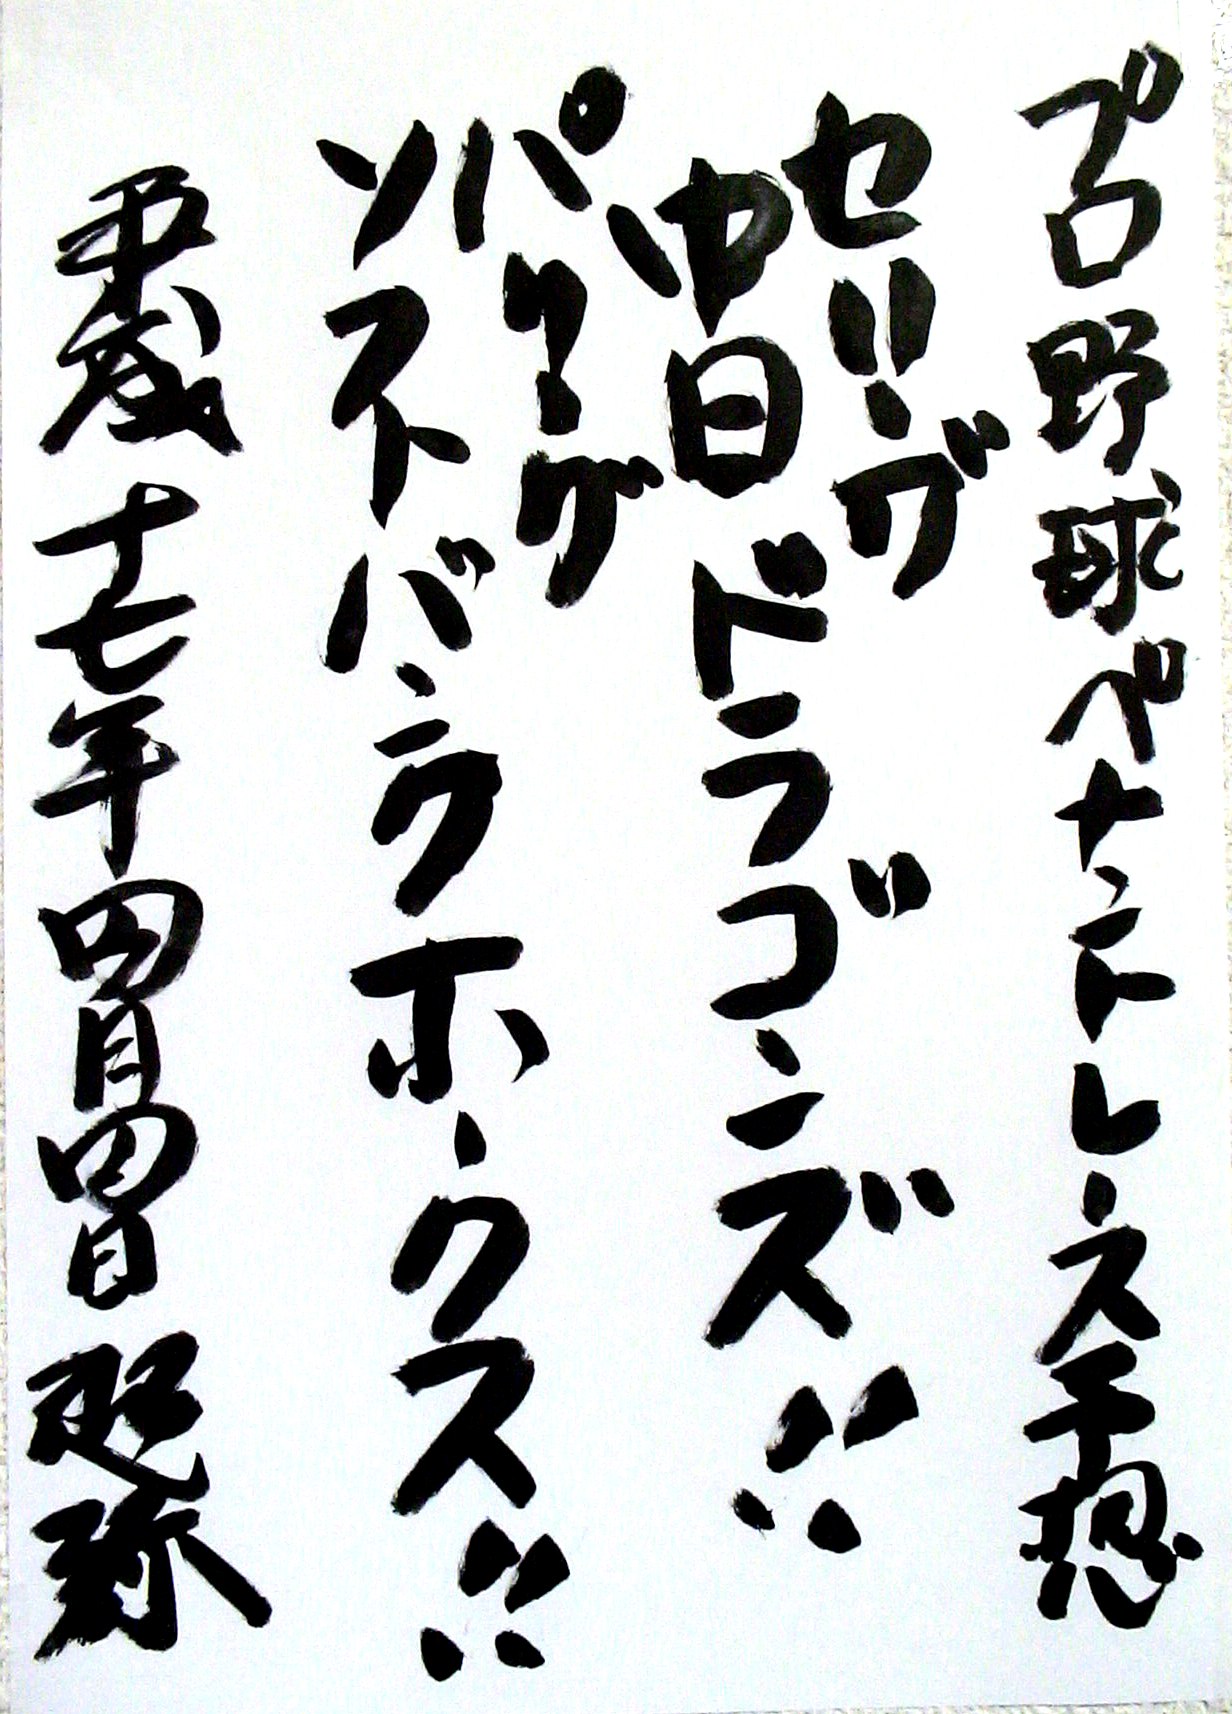 プロ野球ペナントレース予想
セ・リーグ
中日ドラゴンズ!!
パ・リーグ
ソフトバンクホークス!!
平成十七年四月四日